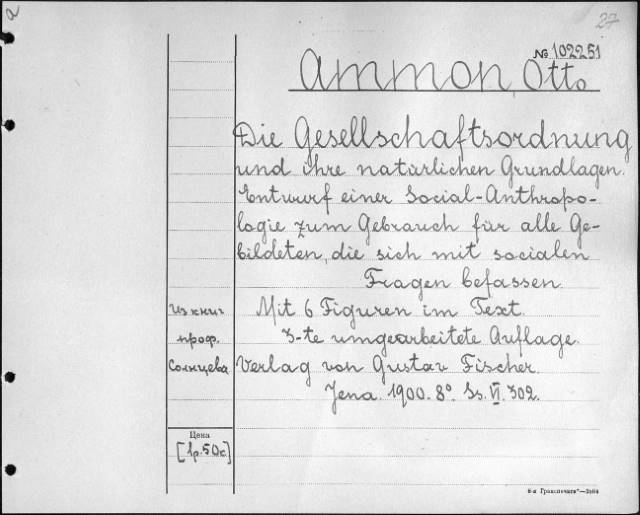 a
27
№ 102251
Ammon, Otto
Die Gesellschaftsordnung
und ihre natürlichen Grundlagen.
Entwurf einer Social-Anthropo-
logie zum Gebrauch für alle Ge-
bildeten, die sich mit socialen
Fragen befassen.
Mit 6 Figuren im Text.
3-te umgearbeitete Auflage.
Verlag von Gustav Fischer.
Jena. 1900. 8° Ss. VI. 302.
Из книг
проф.
Солнцева
Цена
[1р. 50к]